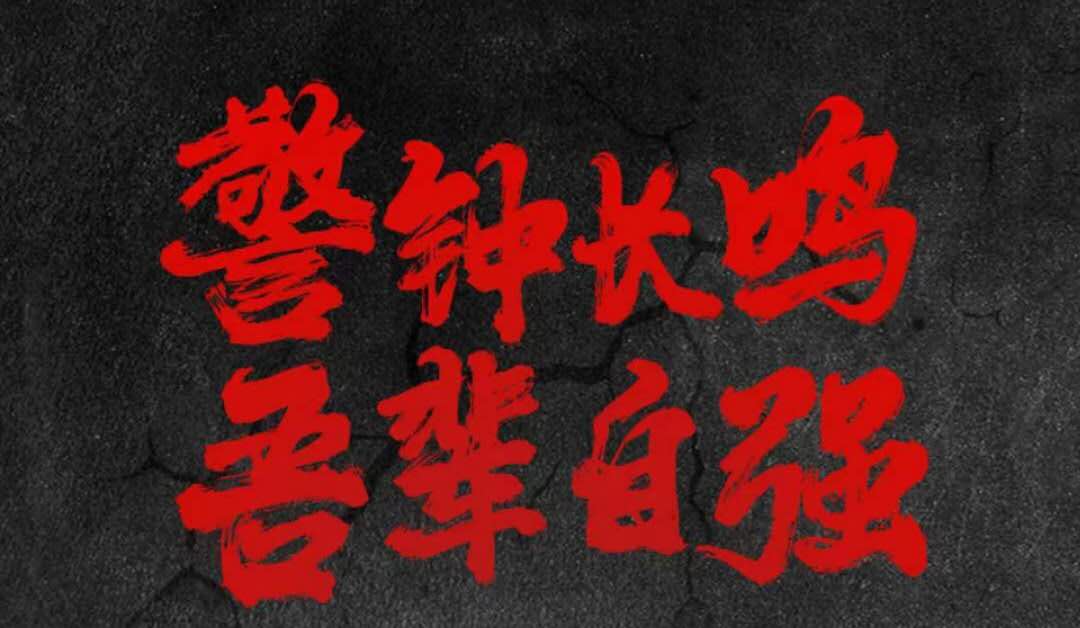 警钟长鸣
吾辈自强